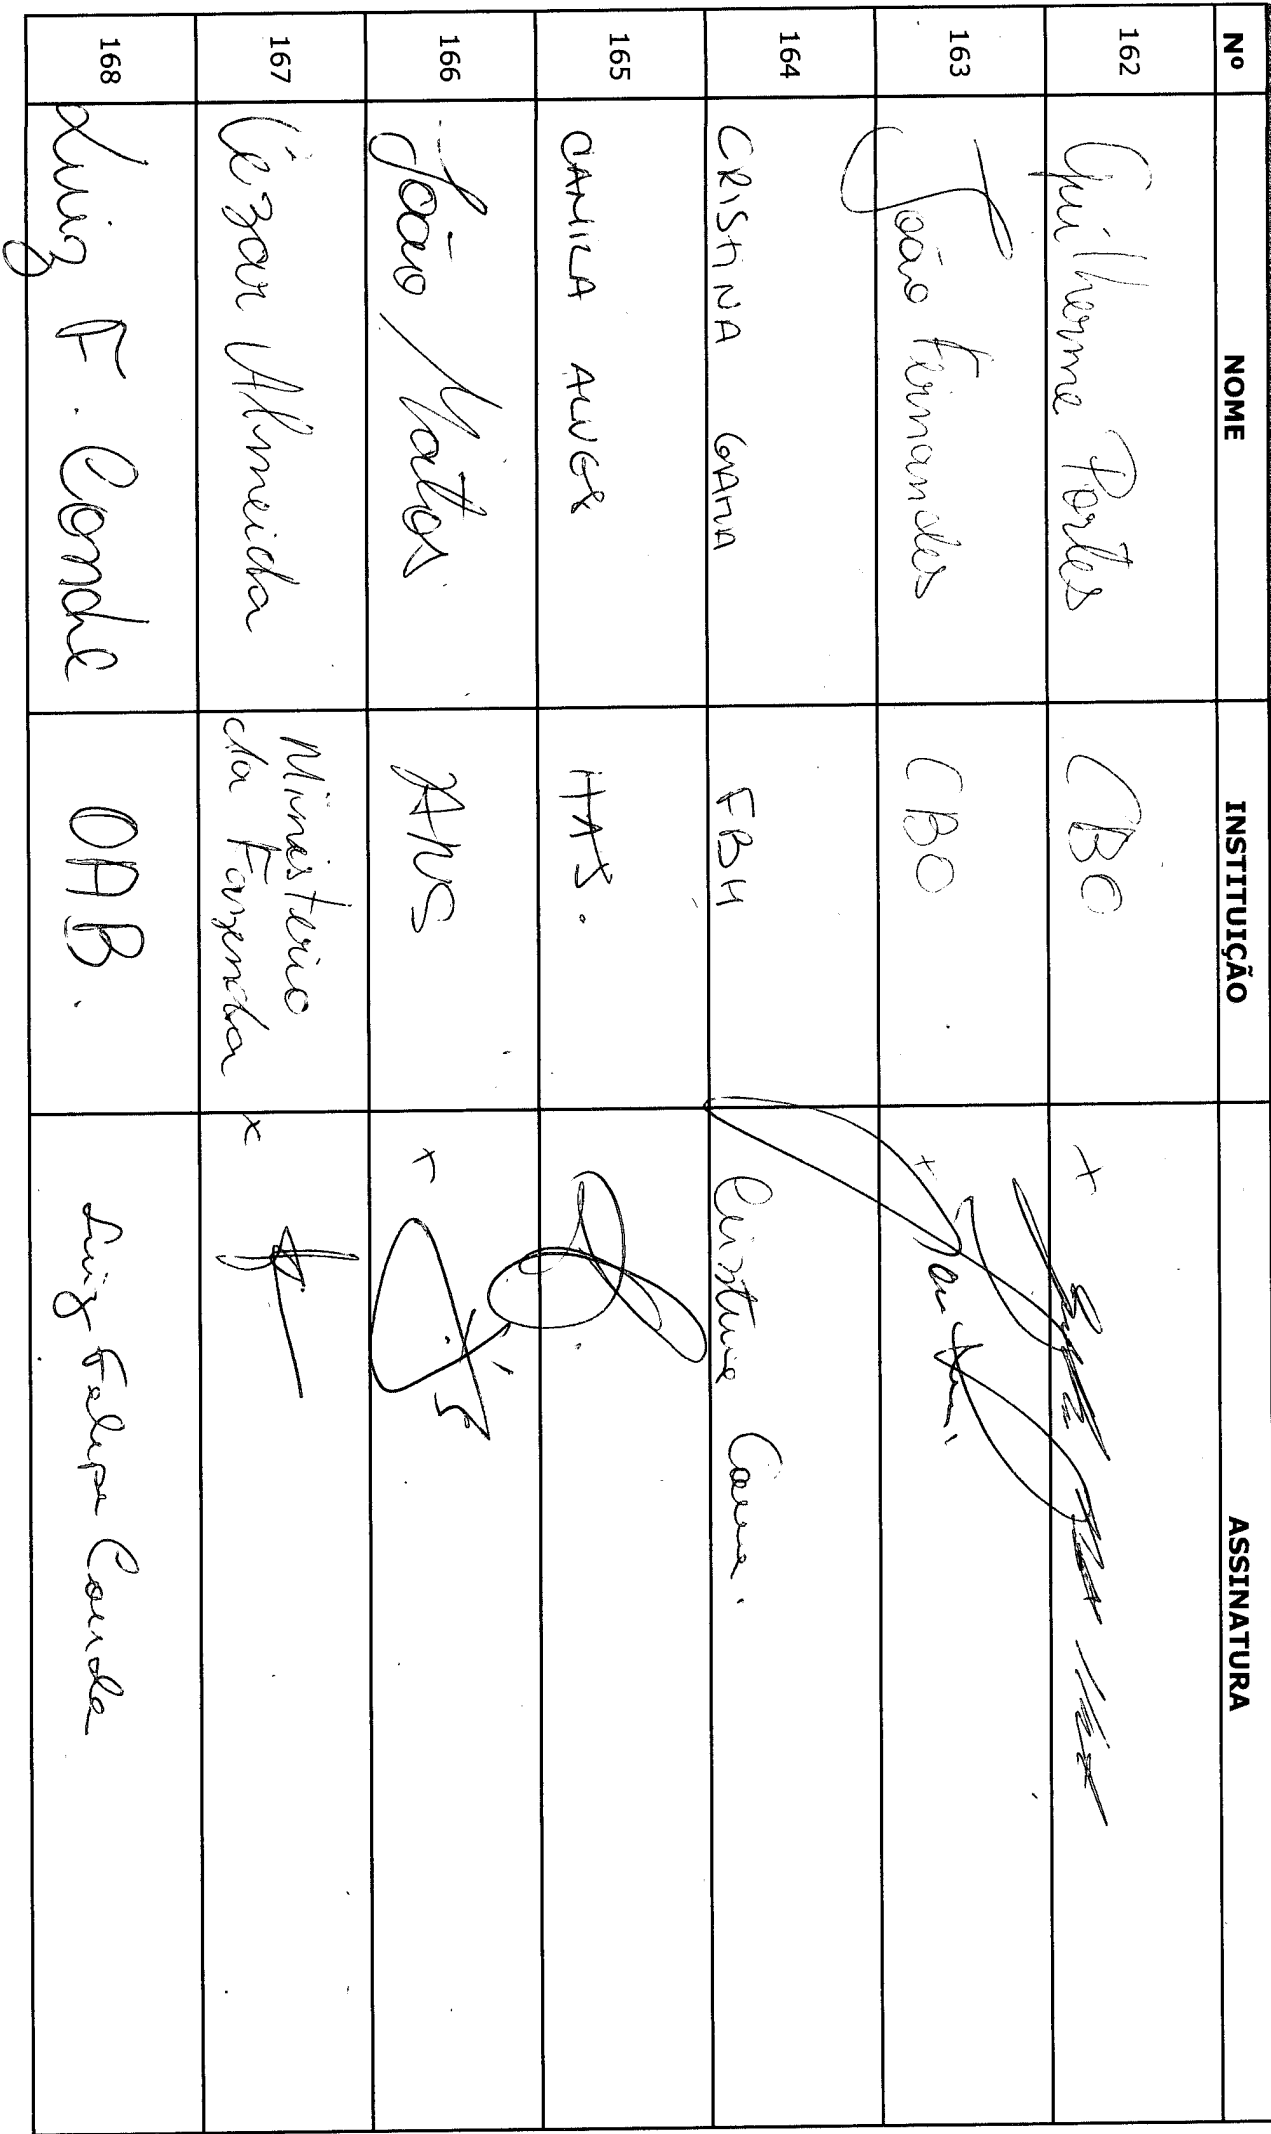 Nº NOME INSTITUIÇÃO ASSINATURA
162 Guilherme Portes CBO +
163 João Fernandes CBO +
164 CRISTINA GAMA FBH Cristina Gama.
165 CAMILA ALVES HAS.
166 João Mattos ANS +
167 Cézar Almeida Ministerio da Fazenda x
168 Luiz F. Conde OAB. Luiz Felipe Conde